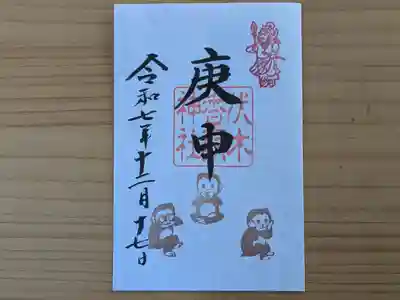 庚申
伏木
香
神社
令和七年十二月十七日